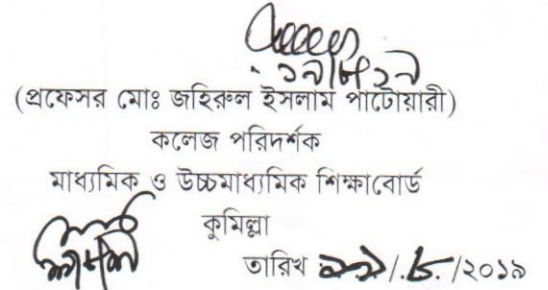 (প্রফেসর মোঃ জহিরুল ইসলাম পাটোয়ারী)
কলেজ পরিদর্শক
মাধ্যমিক ও উচ্চমাধ্যমিক শিক্ষাবোর্ড
কুমিল্লা
তারিখ /.৮. /২০১৯